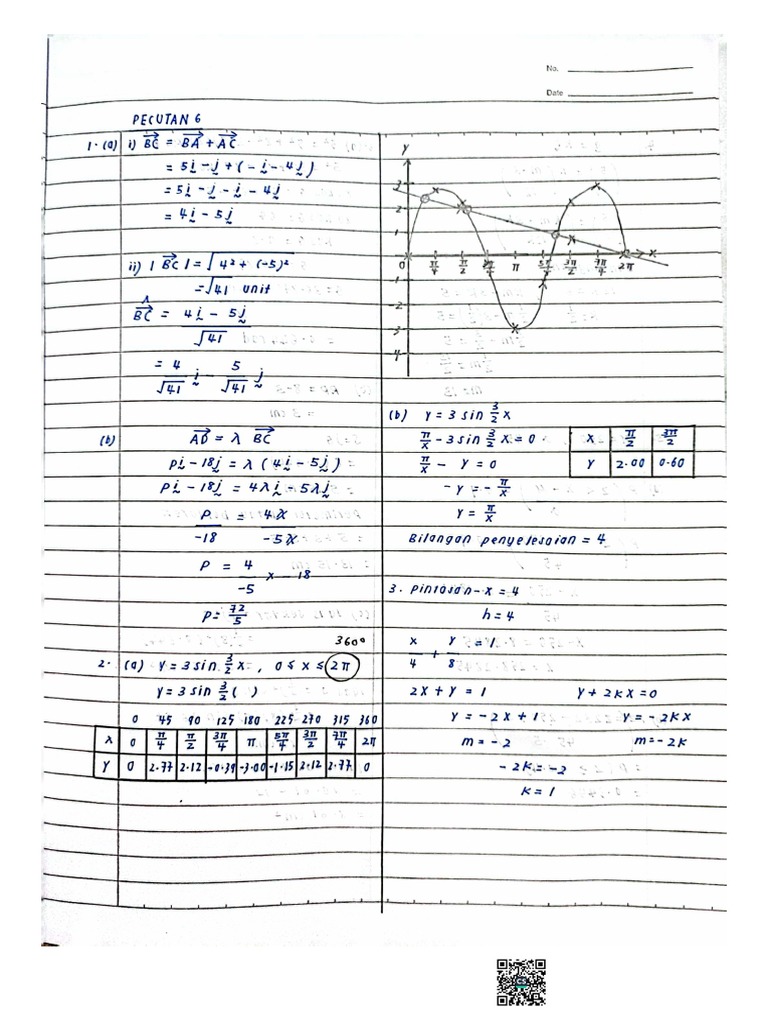 No.
Date
PECUTAN 6
1. (a) i) BC = BA + AC
= 5i - j + (-i - 4j)
= 5i - j - i - 4j
= 4i - 5j
ii) |BC| = √4² + (-5)²
= √41 unit
BC = 4i - 5j
√41
= 4/√41 i - 5/√41 j
(b) AD = λ BC
pi - 18j = λ (4i - 5j)
pi - 18j = 4λi - 5λj
P/-18 = 4λ/-5λ
P = 4/-5 x -18
P = 72/5
360°
2. (a) y = 3 sin 3/2 x, 0 ≤ x ≤ 2π
y = 3 sin 3/2 ( )
0 45 90 125 180 225 270 315 360
λ 0 π/4 π/2 3π/4 π 5π/4 3π/2 7π/4 2π
Y 0 2.77 2.12 -0.39 -3.00 -1.15 2.12 2.77 0
Y
3
2
1
0 π/4 π/2 3π/4 π 5π/4 3π/2 7π/4 2π x
-1
-2
-3
-4
(b) y = 3 sin 3/2 x
π/x - 3 sin 3/2 x = 0
π/x - y = 0
-y = -π/x
y = π/x
X π/2 3π/2
Y 2.00 0.60
Bilangan penyelesaian = 4
3. pintasan-x = 4
h = 4
x/4 + y/8 = 1
2x + y = 1
y = -2x + 1
m = -2
y + 2kx = 0
y = -2kx
m = -2k
-2k = -2
k = 1